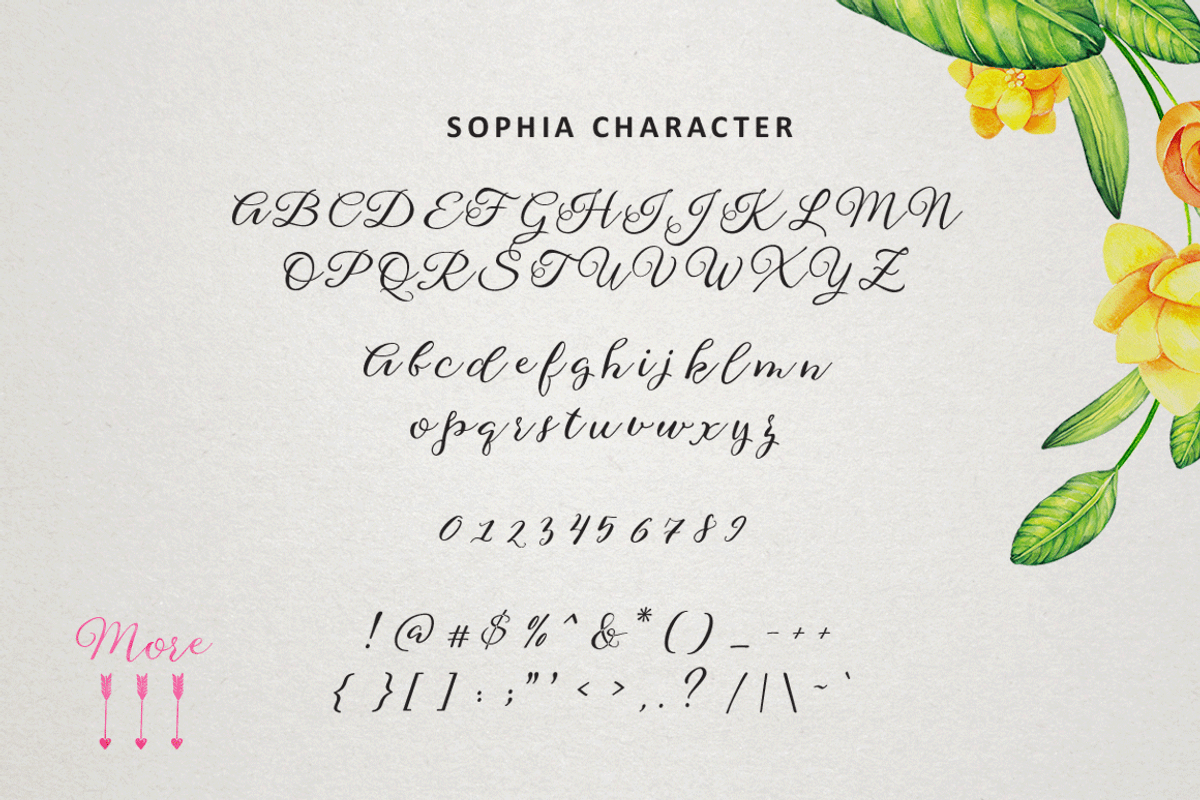 SOPHIA CHARACTER
ABCDEFGHIJKLMN
OPQRSTUVWXYZ
Abcdefghijklmn
opqrstuvwxyz
0123456789
!@#$%^&*()_-++
{}[]:;"'<>,.?/|\~`
More